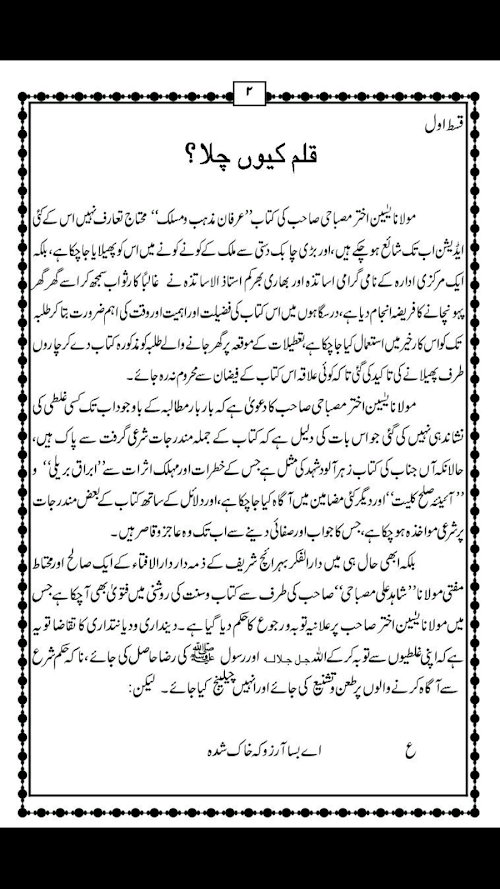 ۲
قسط اول
قلم کیوں چلا؟
مولانا یٰسین اختر مصباحی صاحب کی کتاب ’’عرفان مذہب ومسلک‘‘ محتاج تعارف نہیں اس کے کئی
ایڈیشن اب تک شائع ہوچکے ہیں، اور بڑی چابک دستی سے ملک کے کونے کونے میں اس کو پھیلایا جاچکا ہے، بلکہ
ایک مرکزی ادارہ کے نامی گرامی اساتذہ اور بھاری بھرکم استاذ الاساتذہ نے غالباً کار ثواب سمجھ کر اسے گھر گھر
پہونچانے کا فریضہ انجام دیا ہے، درسگاہوں میں اس کتاب کی فضیلت اور اہمیت اور وقت کی اہم ضرورت بتا کر طلبہ
تک کو اس کار خیر میں استعمال کیا جاچکا ہے، تعطیلات کے موقعہ پر گھر جانے والے طلبہ کو مذکورہ کتاب دے کر چاروں
طرف پھیلانے کی تاکید کی گئی تاکہ کوئی علاقہ اس کتاب کے فیضان سے محروم نہ رہ جائے۔
مولانا یٰسین اختر مصباحی صاحب کا دعویٰ ہے کہ بار بار مطالبہ کے باوجود اب تک کسی غلطی کی
نشاندہی نہیں کی گئی جو اس بات کی دلیل ہے کہ کتاب کے جملہ مندرجات شرعی گرفت سے پاک ہیں،
حالانکہ آں جناب کی کتاب زہر آلود شہد کی مثل ہے جس کے خطرات اور مہلک اثرات سے ’’ابراق بریلی‘‘ و
’’آئینۂ صلح کلیت‘‘ اور دیگر کئی مضامین میں آگاہ کیا جاچکا ہے، اور دلائل کے ساتھ کتاب کے بعض مندرجات
پر شرعی مواخذہ ہوچکا ہے، جس کا جواب اور صفائی دینے سے اب تک وہ عاجز و قاصر ہیں۔
بلکہ ابھی حال ہی میں دارالفکر بہرائچ شریف کے ذمہ دار دارالافتاء کے ایک صالح اور محتاط
مفتی مولانا ’’شاہد علی مصباحی‘‘ صاحب کی طرف سے کتاب و سنت کی روشنی میں فتویٰ بھی آچکا ہے جس
میں مولانا یٰسین اختر صاحب پر علانیہ توبہ و رجوع کا حکم دیا گیا ہے۔ دینداری و دیانتداری کا تقاضا تو یہ
ہے کہ اپنی غلطیوں سے توبہ کرکے اللہ جل جلالہ اور رسول ﷺ کی رضا حاصل کی جائے، ناکہ حکم شرع
سے آگاہ کرنے والوں پر طعن و تشنیع کی جائے اور انہیں چیلینج کیا جائے۔ لیکن:
ع اے بسا آرزو کہ خاک شدہ